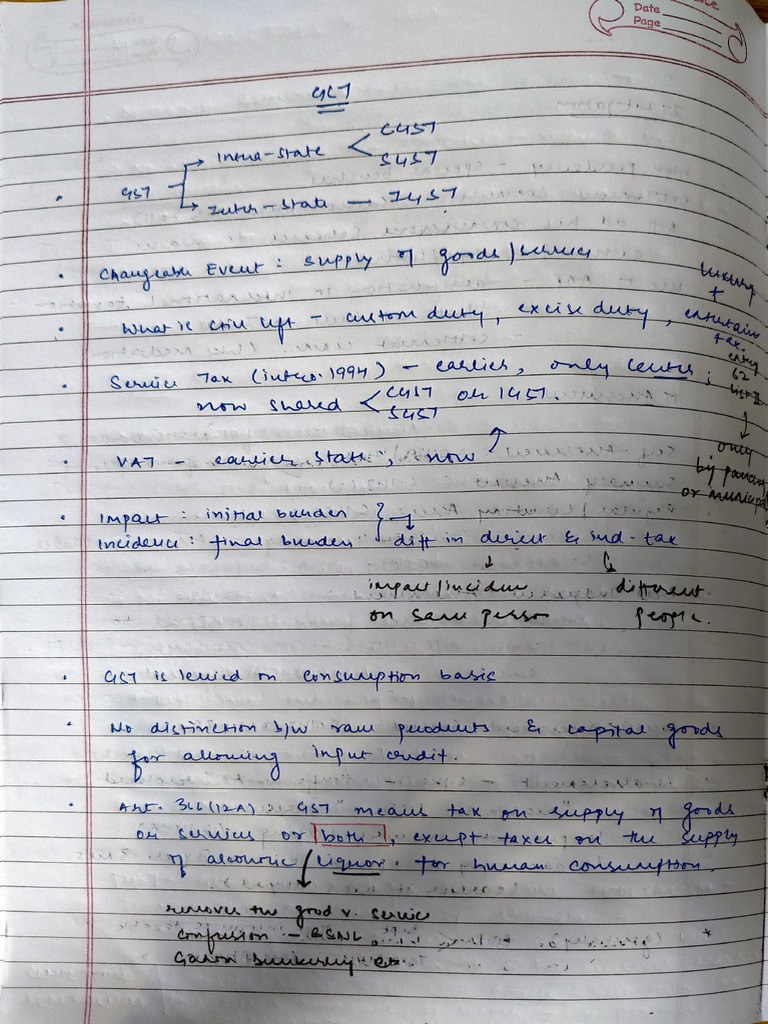 Date
Page
GST
GST → Intra-State < CGST
SGST
→ Inter-State — IGST
Chargeable Event : supply of goods/service
What is still left - custom duty, excise duty, entertain
luxury
+
tax.
entry
62
List II
↓
only
by panch
or municipal
Service Tax (intro. 1994) - earlier, only center ;
now shared < CGST or IGST.
SGST
VAT - earlier state ; now ↑
Impact : initial burden
Incidence : final burden } → diff in direct & ind. tax
impact/inciden
on same person
different
people.
GST is levied on consumption basis
No distinction b/w raw products & capital goods
for allowing input credit.
Art. 366(12A) : GST means tax on supply of goods
or services or both, except taxes on the supply
of alcoholic liquor for human consumption.
removes the good v. service
confusion - BSNL,